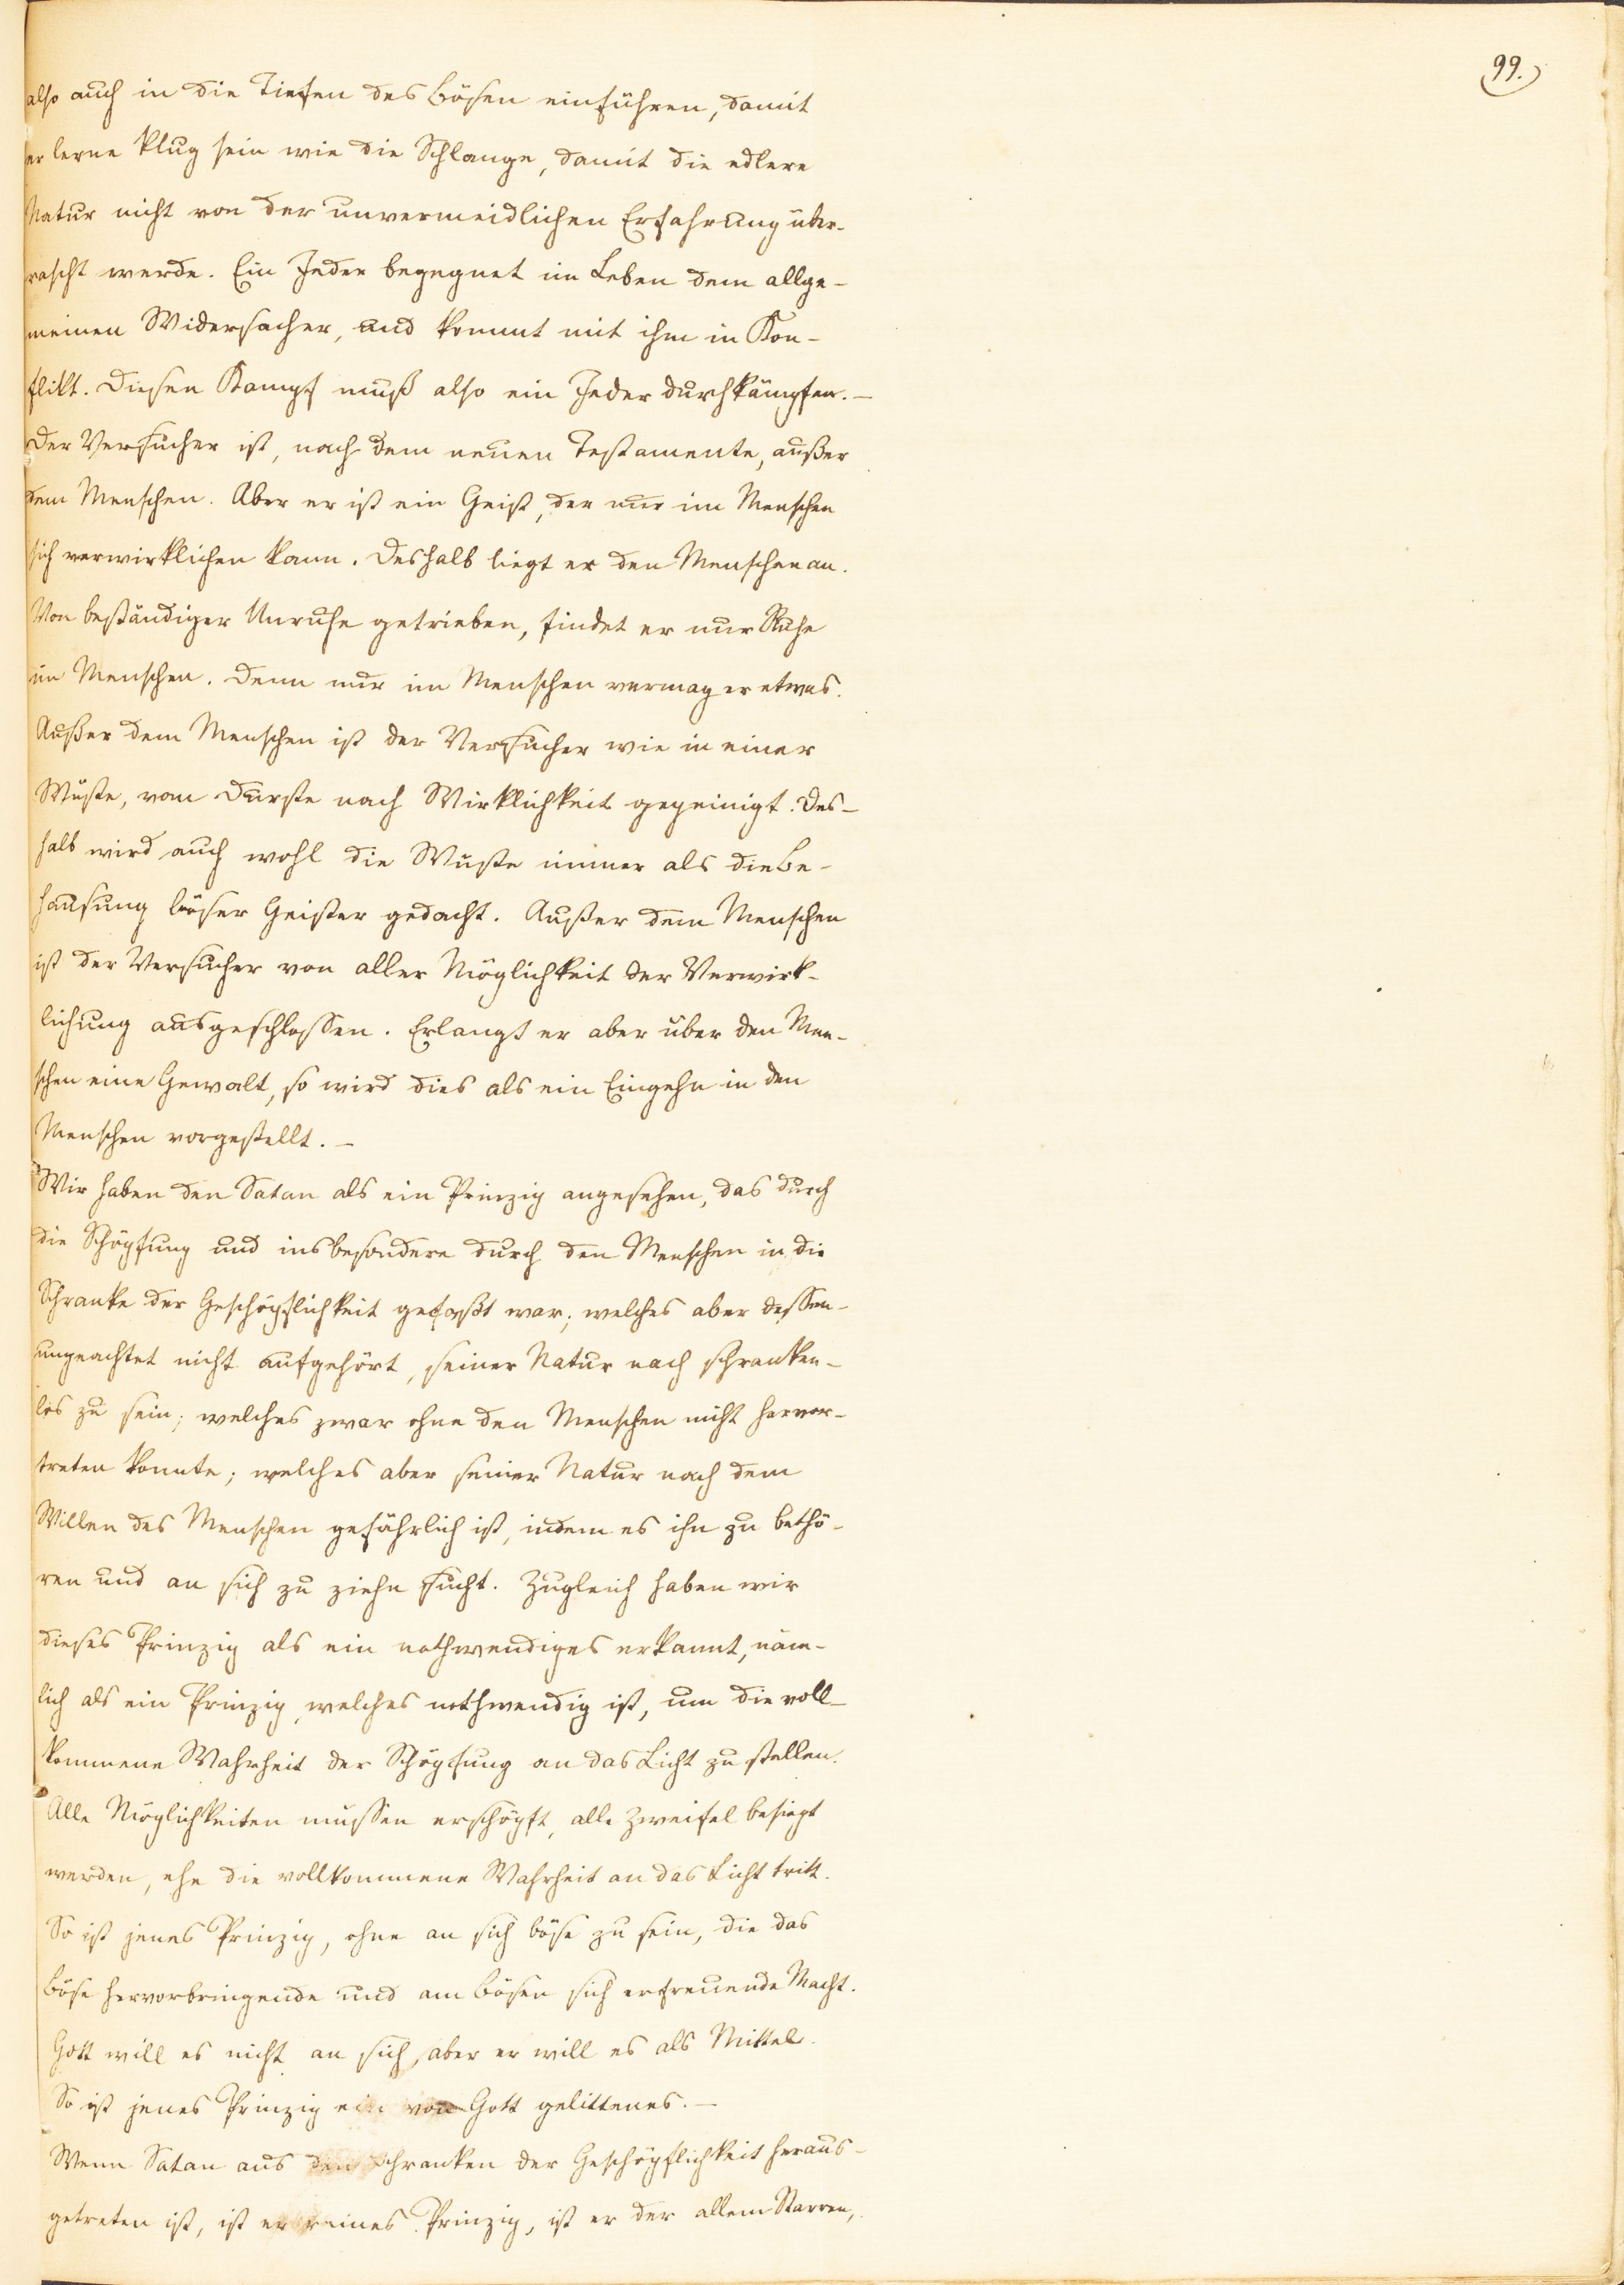 99.
also auch in die Tiefen des Bösen einführen, damit
er lerne klug sein wie die Schlange, damit die edlere
Natur nicht von der unvermeidlichen Erfahrung über-
rascht werde. Ein Jeder begegnet im Leben dem allge-
meinen Widersacher, und kommt mit ihm in Kon-
flikt. Diesen Kampf muß also ein Jeder durchkämpfen. –
Der Versucher ist, nach dem neuen Testamente, außer
dem Menschen. Aber er ist ein Geist, der nur im Menschen
sich verwirklichen kann. Deshalb liegt er den Menschen an.
Von beständiger Unruhe getrieben, findet er nur Ruhe
im Menschen. Denn nur im Menschen vermag er etwas.
Außer dem Menschen ist der Versucher wie in einer
Wüste, vom Durste nach Wirklichkeit gepeinigt. Des-
halb wird auch wohl die Wüste immer als die Be-
hausung böser Geister gedacht. Außer dem Menschen
ist der Versucher von aller Möglichkeit der Verwirk-
lichung ausgeschlossen. Erlangt er aber über den Men-
schen eine Gewalt, so wird dies als ein Eingehn in den
Menschen vorgestellt. –
Wir haben den Satan als ein Prinzip angesehen, das durch
die Schöpfung und insbesondere durch den Menschen in die
Schranke der Geschöpflichkeit gefaßt war; welches aber dessen-
ungeachtet nicht aufgehört, seiner Natur nach schranken-
los zu sein; welches zwar ohne den Menschen nicht hervor-
treten konnte; welches aber seiner Natur nach dem
Willen des Menschen gefährlich ist, indem es ihn zu bethö-
ren und an sich zu ziehn sucht. Zugleich haben wir
dieses Prinzip als ein nothwendiges erkannt, näm-
lich als ein Prinzip, welches nothwendig ist, um die voll-
kommene Wahrheit der Schöpfung an das Licht zu stellen.
Alle Möglichkeiten müssen erschöpft, alle Zweifel besiegt
werden, ehe die vollkommene Wahrheit an das Licht tritt.
So ist jenes Prinzip, ohne an sich böse zu sein, die das
Böse hervorbringende und am Bösen sich erfreuende Macht.
Gott will es nicht an sich, aber er will es als Mittel.
So ist jenes Prinzip ein von Gott gelittenes. –
Wenn Satan aus den Schranken der Geschöpflichkeit heraus-
getreten ist, ist er reines Prinzip, ist er der allem Starren,